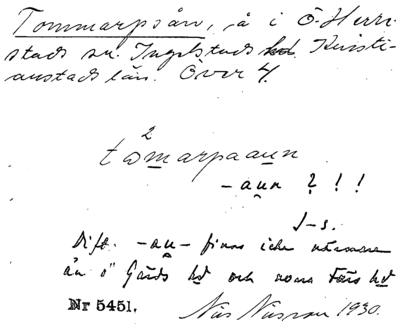 Tommarpsån, å i Ö. Herre-
stads sn. Ingelstads hd. Kristi-
anstads län. Över 4.
2
tåmarpaaun
-aun ? ! !
J-s.
Dift. -au- finns icke närmare
än ö Gärds hd och norra Färs hd
Nr 5451.
1930.